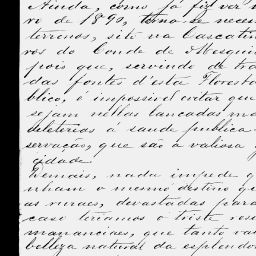 Ainda, como já fiz ver
ro de 1890, torna-se neces
terrenos, sitə na Cascatin
ros do Conde de Mesqui
pois que, servindo de tra
das fontes d'esta Floresta
blico, é impossivel evitar que
sejam nellas lançadas ma
deleterias á saude publica
servação, que são a valiosa
cidade.
Demais, nada impede q
nham o mesmo destino q
as ruraes, devastadas para
caso teriamos o triste res
mananciaes, que tanto va
belleza natural da esplendo